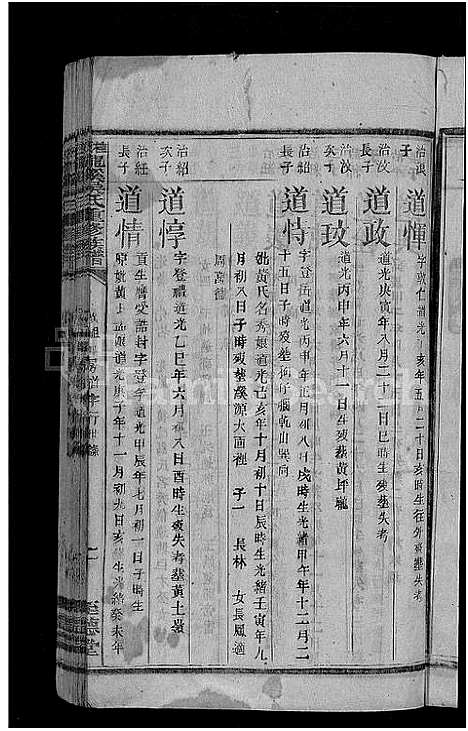 治浪子
道惲
字敦仁道光亥年五月二十日亥時生往外歿塟失考
治汝次子
道政
道光庚寅年八月二十二日巳時生歿塟失考
治汝三子
道玟
道光丙申年六月十一日生歿塟黃坪壠
治紹長子
道恃
字登岳道光丙申年正月初八日戌時生光緒甲午年十二月二
十五日子時歿塟乾山巽向
妣黃氏名秀娘道光己亥年十月初十日辰時生光緒壬寅年九
月初八日子時歿塟溪源大面裡 子一 長林 女長鳳適
周萬衛
治紹次子
道惇
字登禮道光乙巳年六月初八日酉時生歿失考塟黃土嶺
治紅長子
道情
字登亭道光甲辰年七月初一日子時生
道光庚子年十一月初九日亥時生光緒癸未年
氏重修族譜
至德堂